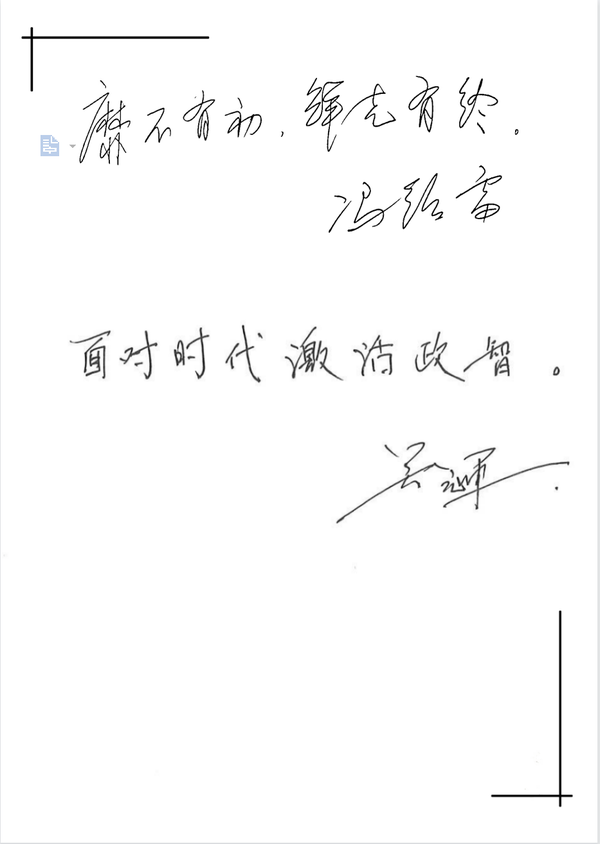 靡不有初，鲜克有终.
冯绍雷
面对时代激活政智。
吴冠軍.